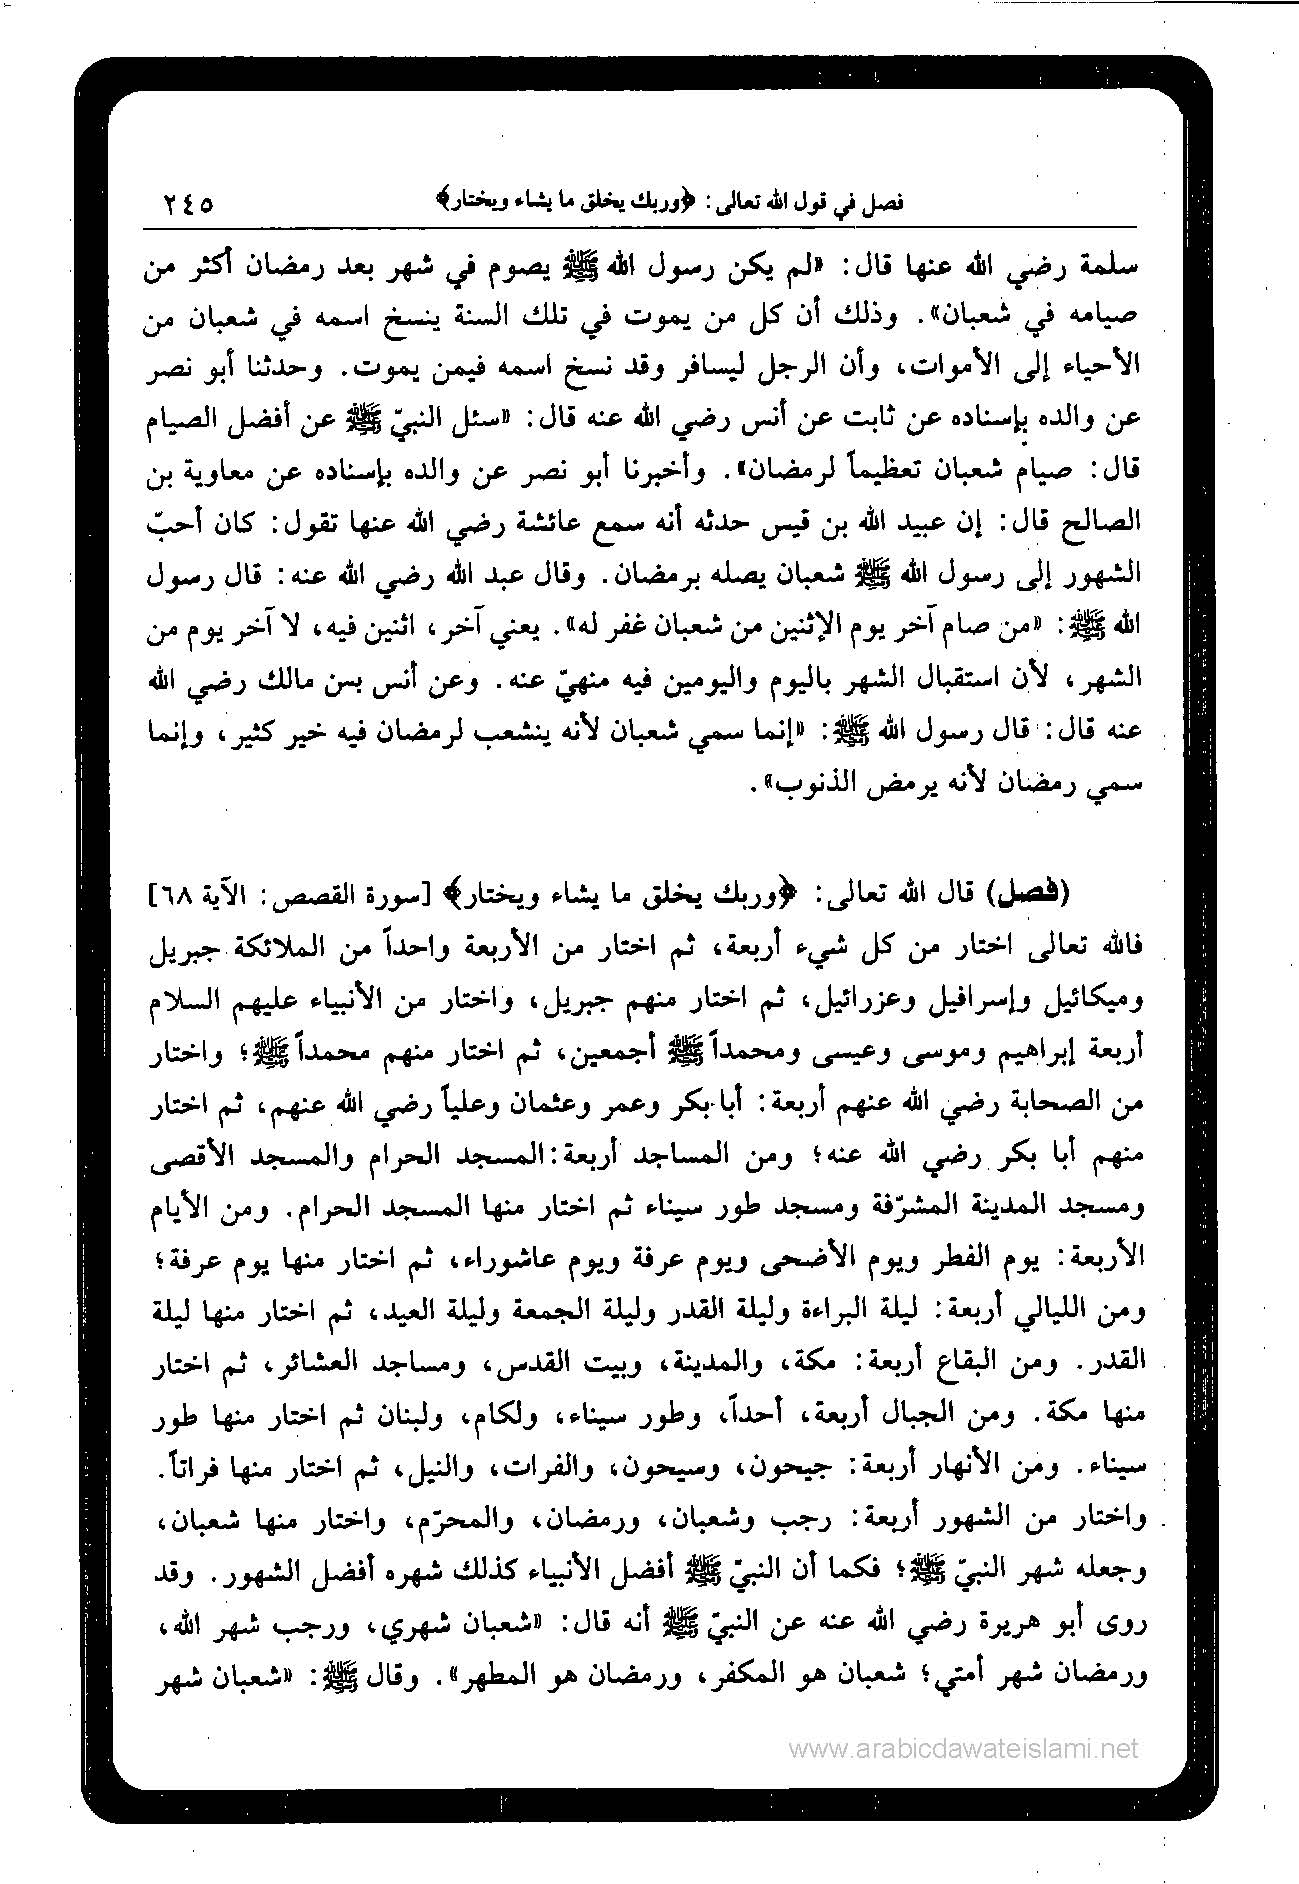 فصل في قول الله تعالى: ﴿وربك يخلق ما يشاء ويختار﴾ ٢٤٥
سلمة رضي الله عنها قال: «لم يكن رسول الله ﷺ يصوم في شهر بعد رمضان أكثر من
صيامه في شعبان». وذلك أن كل من يموت في تلك السنة ينسخ اسمه في شعبان من
الأحياء إلى الأموات، وأن الرجل ليسافر وقد نسخ اسمه فيمن يموت. وحدثنا أبو نصر
عن والده بإسناده عن ثابت عن أنس رضي الله عنه قال: «سئل النبيّ ﷺ عن أفضل الصيام
قال: صيام شعبان تعظيماً لرمضان». وأخبرنا أبو نصر عن والده بإسناده عن معاوية بن
الصالح قال: إن عبيد الله بن قيس حدثه أنه سمع عائشة رضي الله عنها تقول: كان أحبّ
الشهور إلى رسول الله ﷺ شعبان يصله برمضان. وقال عبد الله رضي الله عنه: قال رسول
الله ﷺ: «من صام آخر يوم الإثنين من شعبان غفر له». يعني آخر، اثنين فيه، لا آخر يوم من
الشهر، لأن استقبال الشهر باليوم واليومين فيه منهيّ عنه. وعن أنس بن مالك رضي الله
عنه قال: قال رسول الله ﷺ: «إنما سمي شعبان لأنه ينشعب لرمضان فيه خير كثير، وإنما
سمي رمضان لأنه يرمض الذنوب».
(فصل) قال الله تعالى: ﴿وربك يخلق ما يشاء ويختار﴾ [سورة القصص: الآية ٦٨]
فالله تعالى اختار من كل شيء أربعة، ثم اختار من الأربعة واحداً من الملائكة جبريل
وميكائيل وإسرافيل وعزرائيل، ثم اختار منهم جبريل، واختار من الأنبياء عليهم السلام
أربعة إبراهيم وموسى وعيسى ومحمداً ﷺ أجمعين، ثم اختار منهم محمداً ﷺ؛ واختار
من الصحابة رضي الله عنهم أربعة: أبا بكر وعمر وعثمان وعلياً رضي الله عنهم، ثم اختار
منهم أبا بكر رضي الله عنه؛ ومن المساجد أربعة: المسجد الحرام والمسجد الأقصى
ومسجد المدينة المشرّفة ومسجد طور سيناء ثم اختار منها المسجد الحرام. ومن الأيام
الأربعة: يوم الفطر ويوم الأضحى ويوم عرفة ويوم عاشوراء، ثم اختار منها يوم عرفة؛
ومن الليالي أربعة: ليلة البراءة وليلة القدر وليلة الجمعة وليلة العيد، ثم اختار منها ليلة
القدر. ومن البقاع أربعة: مكة، والمدينة، وبيت القدس، ومساجد العشائر، ثم اختار
منها مكة. ومن الجبال أربعة، أحداً، وطور سيناء، ولكام، ولبنان ثم اختار منها طور
سيناء. ومن الأنهار أربعة: جيحون، وسيحون، والفرات، والنيل، ثم اختار منها فراتاً.
واختار من الشهور أربعة: رجب وشعبان، ورمضان، والمحرّم، واختار منها شعبان،
وجعله شهر النبيّ ﷺ؛ فكما أن النبيّ ﷺ أفضل الأنبياء كذلك شهره أفضل الشهور. وقد
روى أبو هريرة رضي الله عنه عن النبيّ ﷺ أنه قال: «شعبان شهري، ورجب شهر الله،
ورمضان شهر أمتي؛ شعبان هو المكفر، ورمضان هو المطهر». وقال ﷺ: «شعبان شهر
www.arabicdawateislami.net